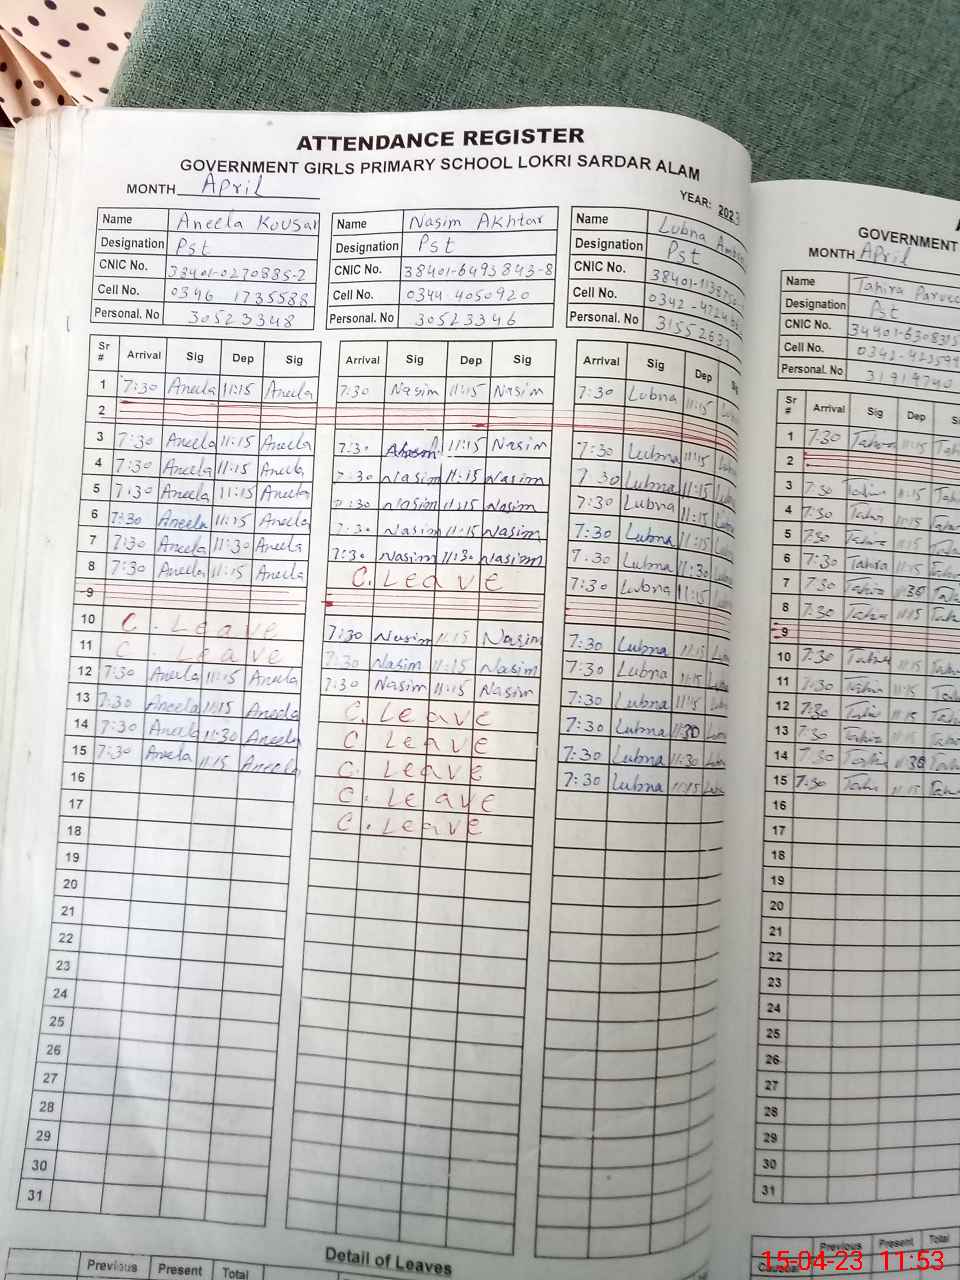 ATTENDANCE REGISTER
GOVERNMENT GIRLS PRIMARY SCHOOL LOKRI SARDAR ALAM
MONTH April YEAR: 2023
Name Aneela Kousar Name Nasim Akhtar Name Lubna
Designation Pst Designation Pst Designation Pst
CNIC No. 38401-0270885-2 CNIC No. 38401-6493843-8 CNIC No.
Cell No. 0346 1735588 Cell No. 0344-4050920 Cell No.
Personal. No 30523348 Personal. No 30523346 Personal. No
Sr # Arrival Sig Dep Sig Arrival Sig Dep Sig Arrival Sig Dep
1 7:30 Aneela 11:15 Aneela 7:30 Nasim 11:15 Nasim 7:30 Lubna 11:15 Lubna
2
3 7:30 Aneela 11:15 Aneela 7:30 11:15 Nasim 7:30 Lubna 11:15
4 7:30 Aneela 11:15 Aneela 7:30 Nasim 11:15 Nasim 7:30 Lubna 11:15
5 7:30 Aneela 11:15 Aneela 7:30 Nasim 11:15 Nasim 7:30 Lubna 11:15
6 7:30 Aneela 11:15 Aneela 7:30 Nasim 11:15 Nasim 7:30 Lubna 11:15
7 7:30 Aneela 11:30 Aneela 7:30 Nasim 11:30 Nasim 7:30 Lubna 11:30
8 7:30 Aneela 11:15 Aneela C. Leave 7:30 Lubna 11:15
9
10 C. Leave 7:30 Nasim 11:15 Nasim 7:30 Lubna 11:15
11 C. Leave 7:30 Nasim 11:15 Nasim 7:30 Lubna 11:15
12 7:30 Aneela 11:15 Aneela 7:30 Nasim 11:15 Nasim 7:30 Lubna 11:15
13 7:30 Aneela 11:15 Aneela C. Leave 7:30 Lubna 11:30
14 7:30 Aneela 11:30 Aneela C. Leave 7:30 Lubna 11:30
15 7:30 Aneela 11:15 Aneela C. Leave 7:30 Lubna 11:15
16 C. Leave
17 C. Leave
18
19
20
21
22
23
24
25
26
27
28
29
30
31
Detail of Leaves
Previous Present Total
GOVERNMENT
MONTH April
Name Tahira
Designation Pst
CNIC No.
Cell No.
Personal. No
Sr # Arrival Sig Dep
1 7:30 Tahira 11:15
2
3 7:30 11:15
4 7:30 11:15
5 7:30 11:15
6 7:30 Tahira 11:15
7 7:30 11:30
8 7:30 11:15
9
10 7:30 11:15
11 7:30 11:15
12 7:30 11:15
13 7:30 11:15
14 7:30 11:30
15 7:30 11:15
16
17
18
19
20
21
22
23
24
25
26
27
28
29
30
31
Previous Present Total
15-04-23 11:53